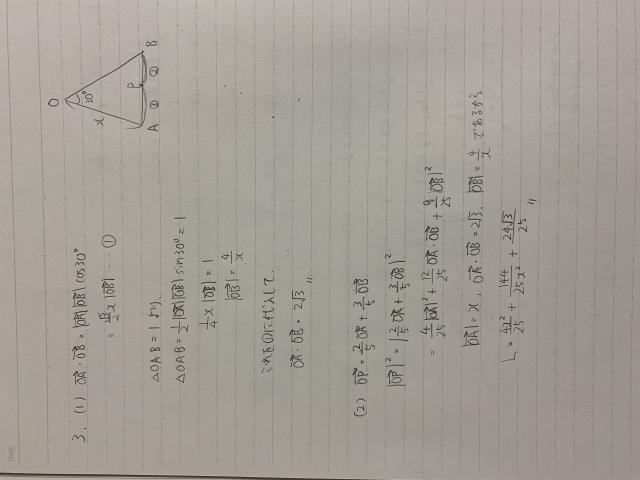 3. (1) OA・OB = |OA||OB| cos30°
= √3/2 x|OB| … ①
△OAB = 1 より、
△OAB = 1/2|OA||OB| sin30° = 1
1/4 x|OB| = 1
|OB| = 4/x
これを①に代入して、
OA・OB = 2√3 〃
(2) OP = 2/5 OA + 3/5 OB
|OP|² = |2/5 OA + 3/5 OB|²
= 4/25|OA|² + 12/25 OA・OB + 9/25|OB|²
|OA| = x, OA・OB = 2√3, |OB| = 4/x であるから
L = 4x²/25 + 144/25x² + 24√3/25 〃
O
30°
x
A ③ P ② B